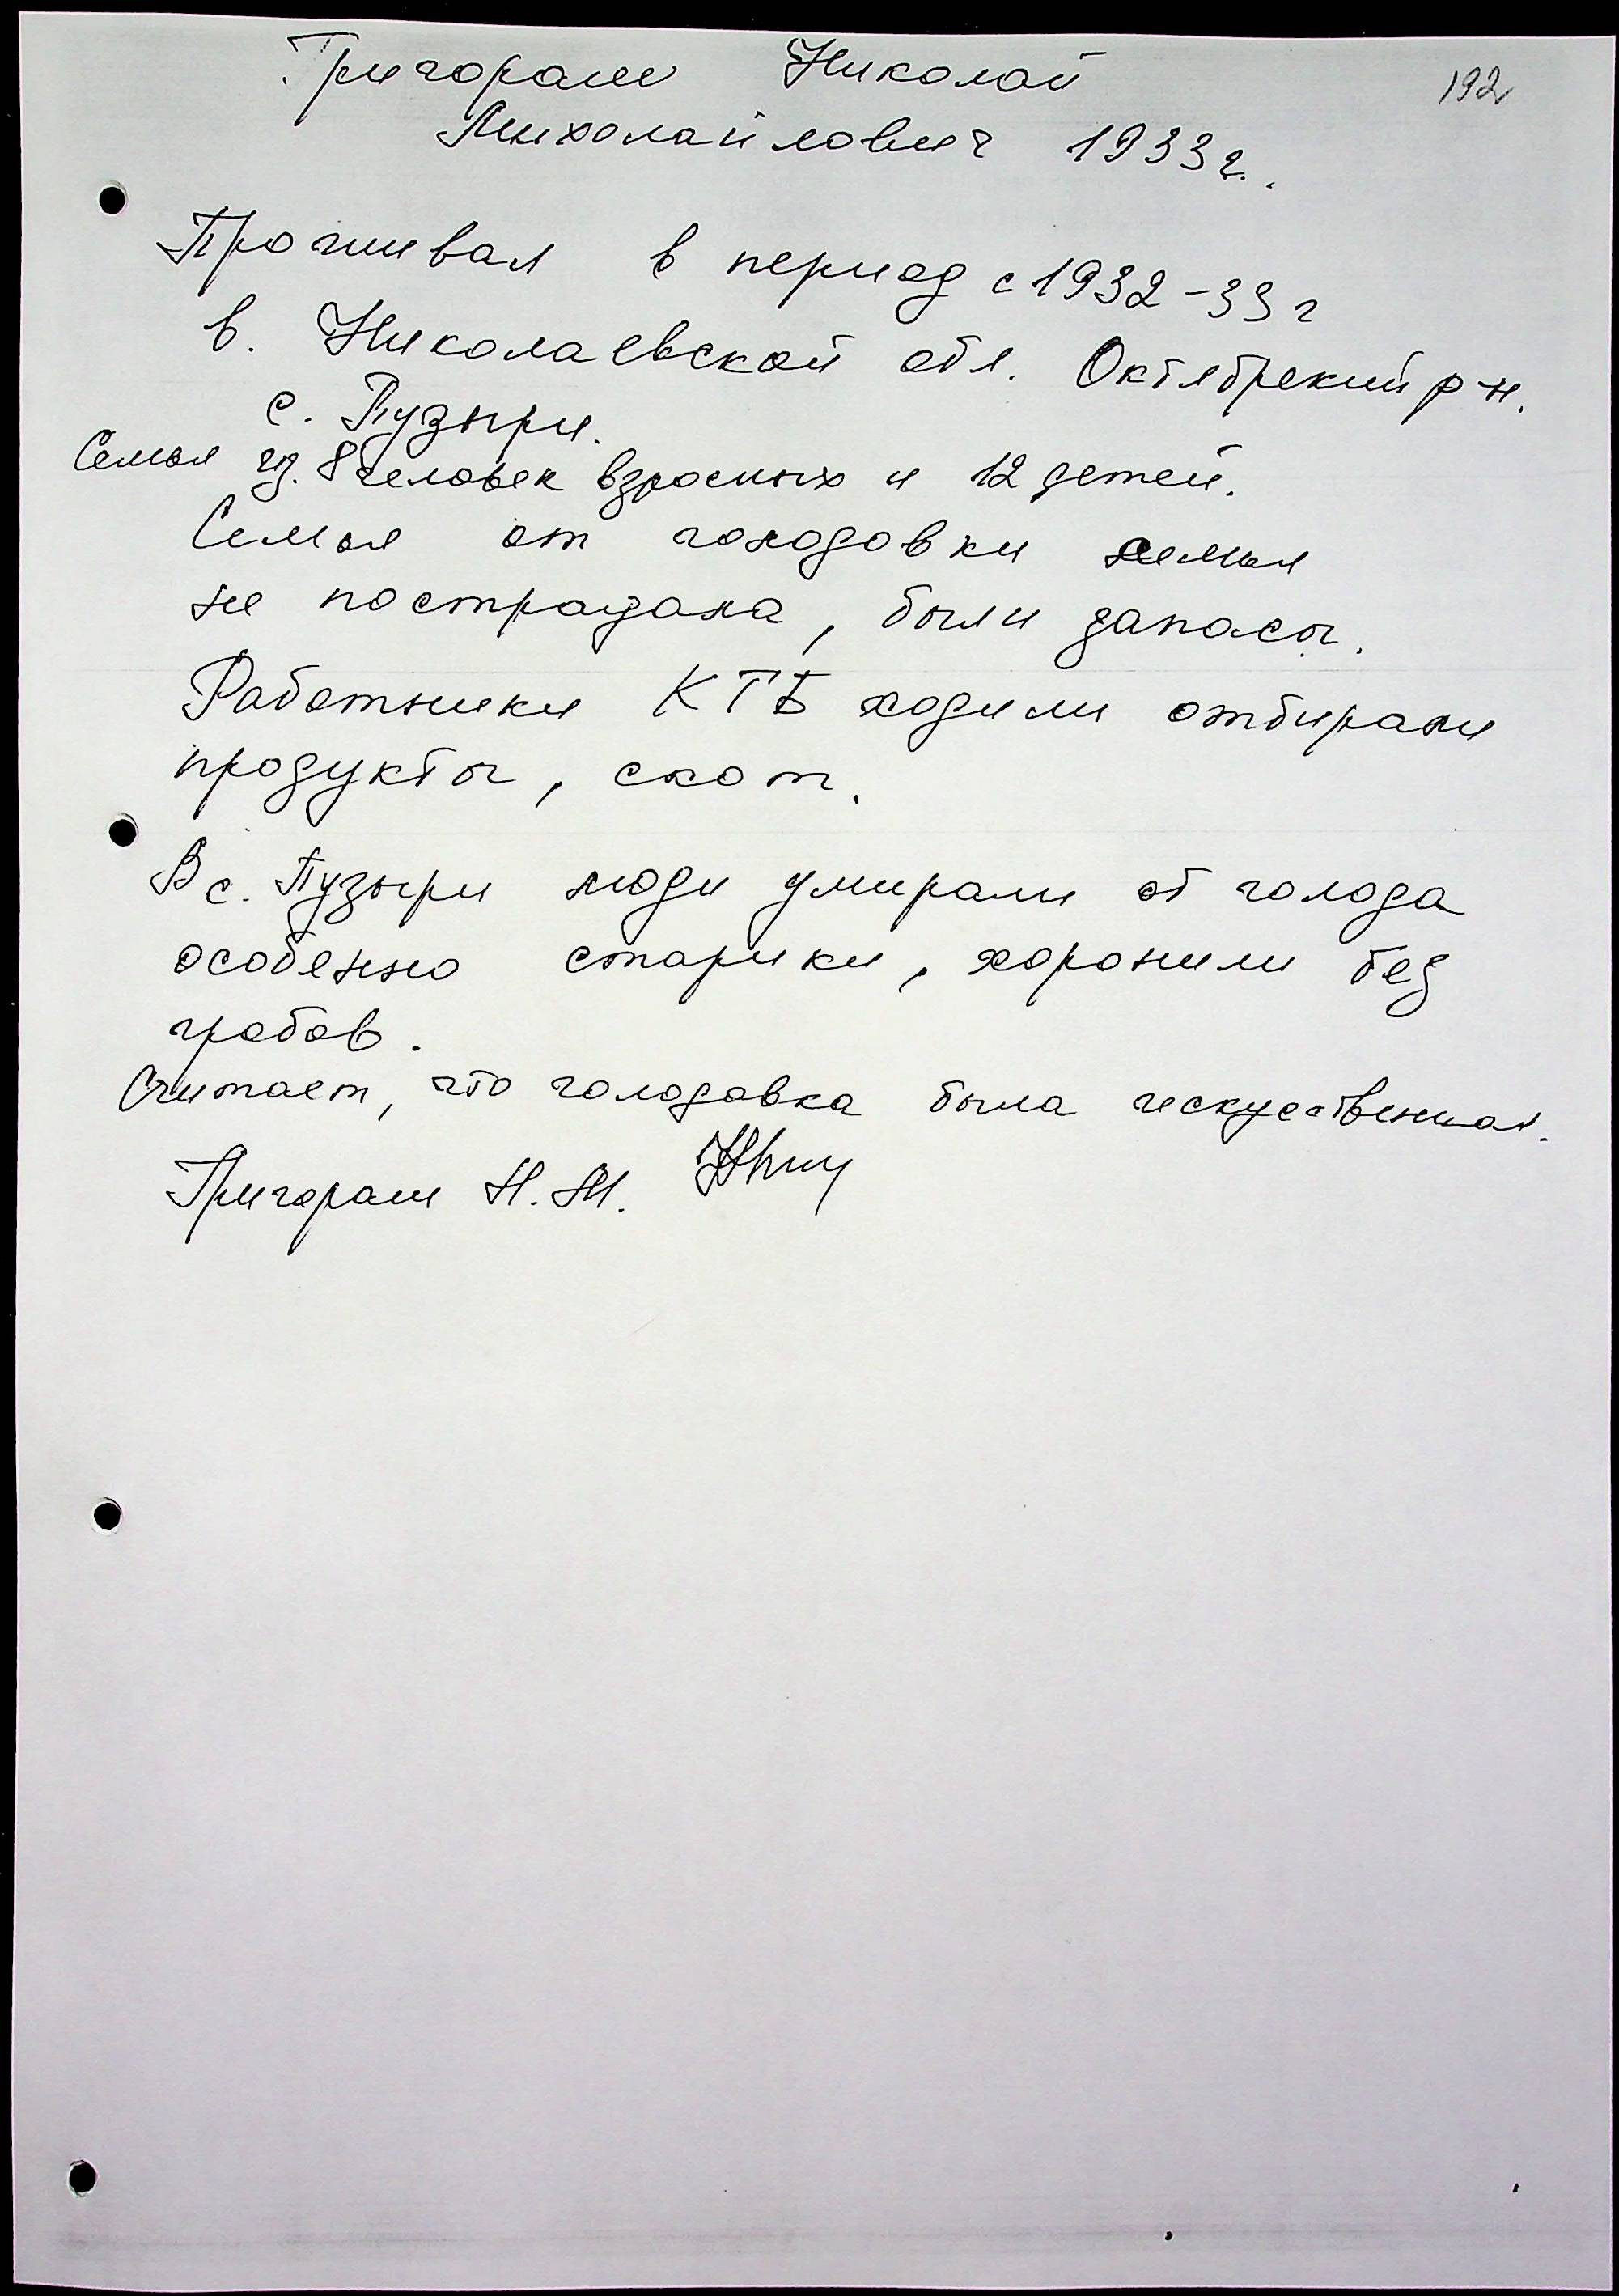 Григораш Николай
192
Михолайлович 1933г.
Проживал в период с 1932-33г
в. Николаевской обл. Октябрский р-н.
с. Пузыри.
Семья из. 8 человек взрослых и 12 детей.
Семья от голодовки семья
не пострадала, были запасы.
Работники КГБ ходили отбирали
продукты, скот.
В с. Пузыри люди умирали от голода
особенно старики, хоронили без
гробов.
Считает, что голодовка была искуственная.
Григораш Н.М.